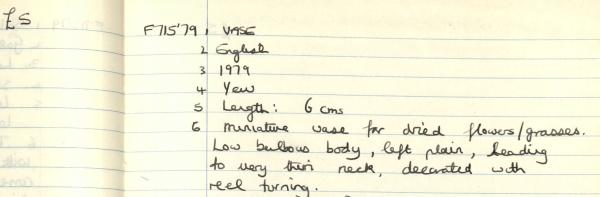 £5
F715'79 1 VASE
2 English
3 1979
4 Yew
5 Length: 6 cms
6 Miniature vase for dried flowers/grasses.
Low bulbous body, left plain, leading
to very thin neck, decorated with
reel turning.